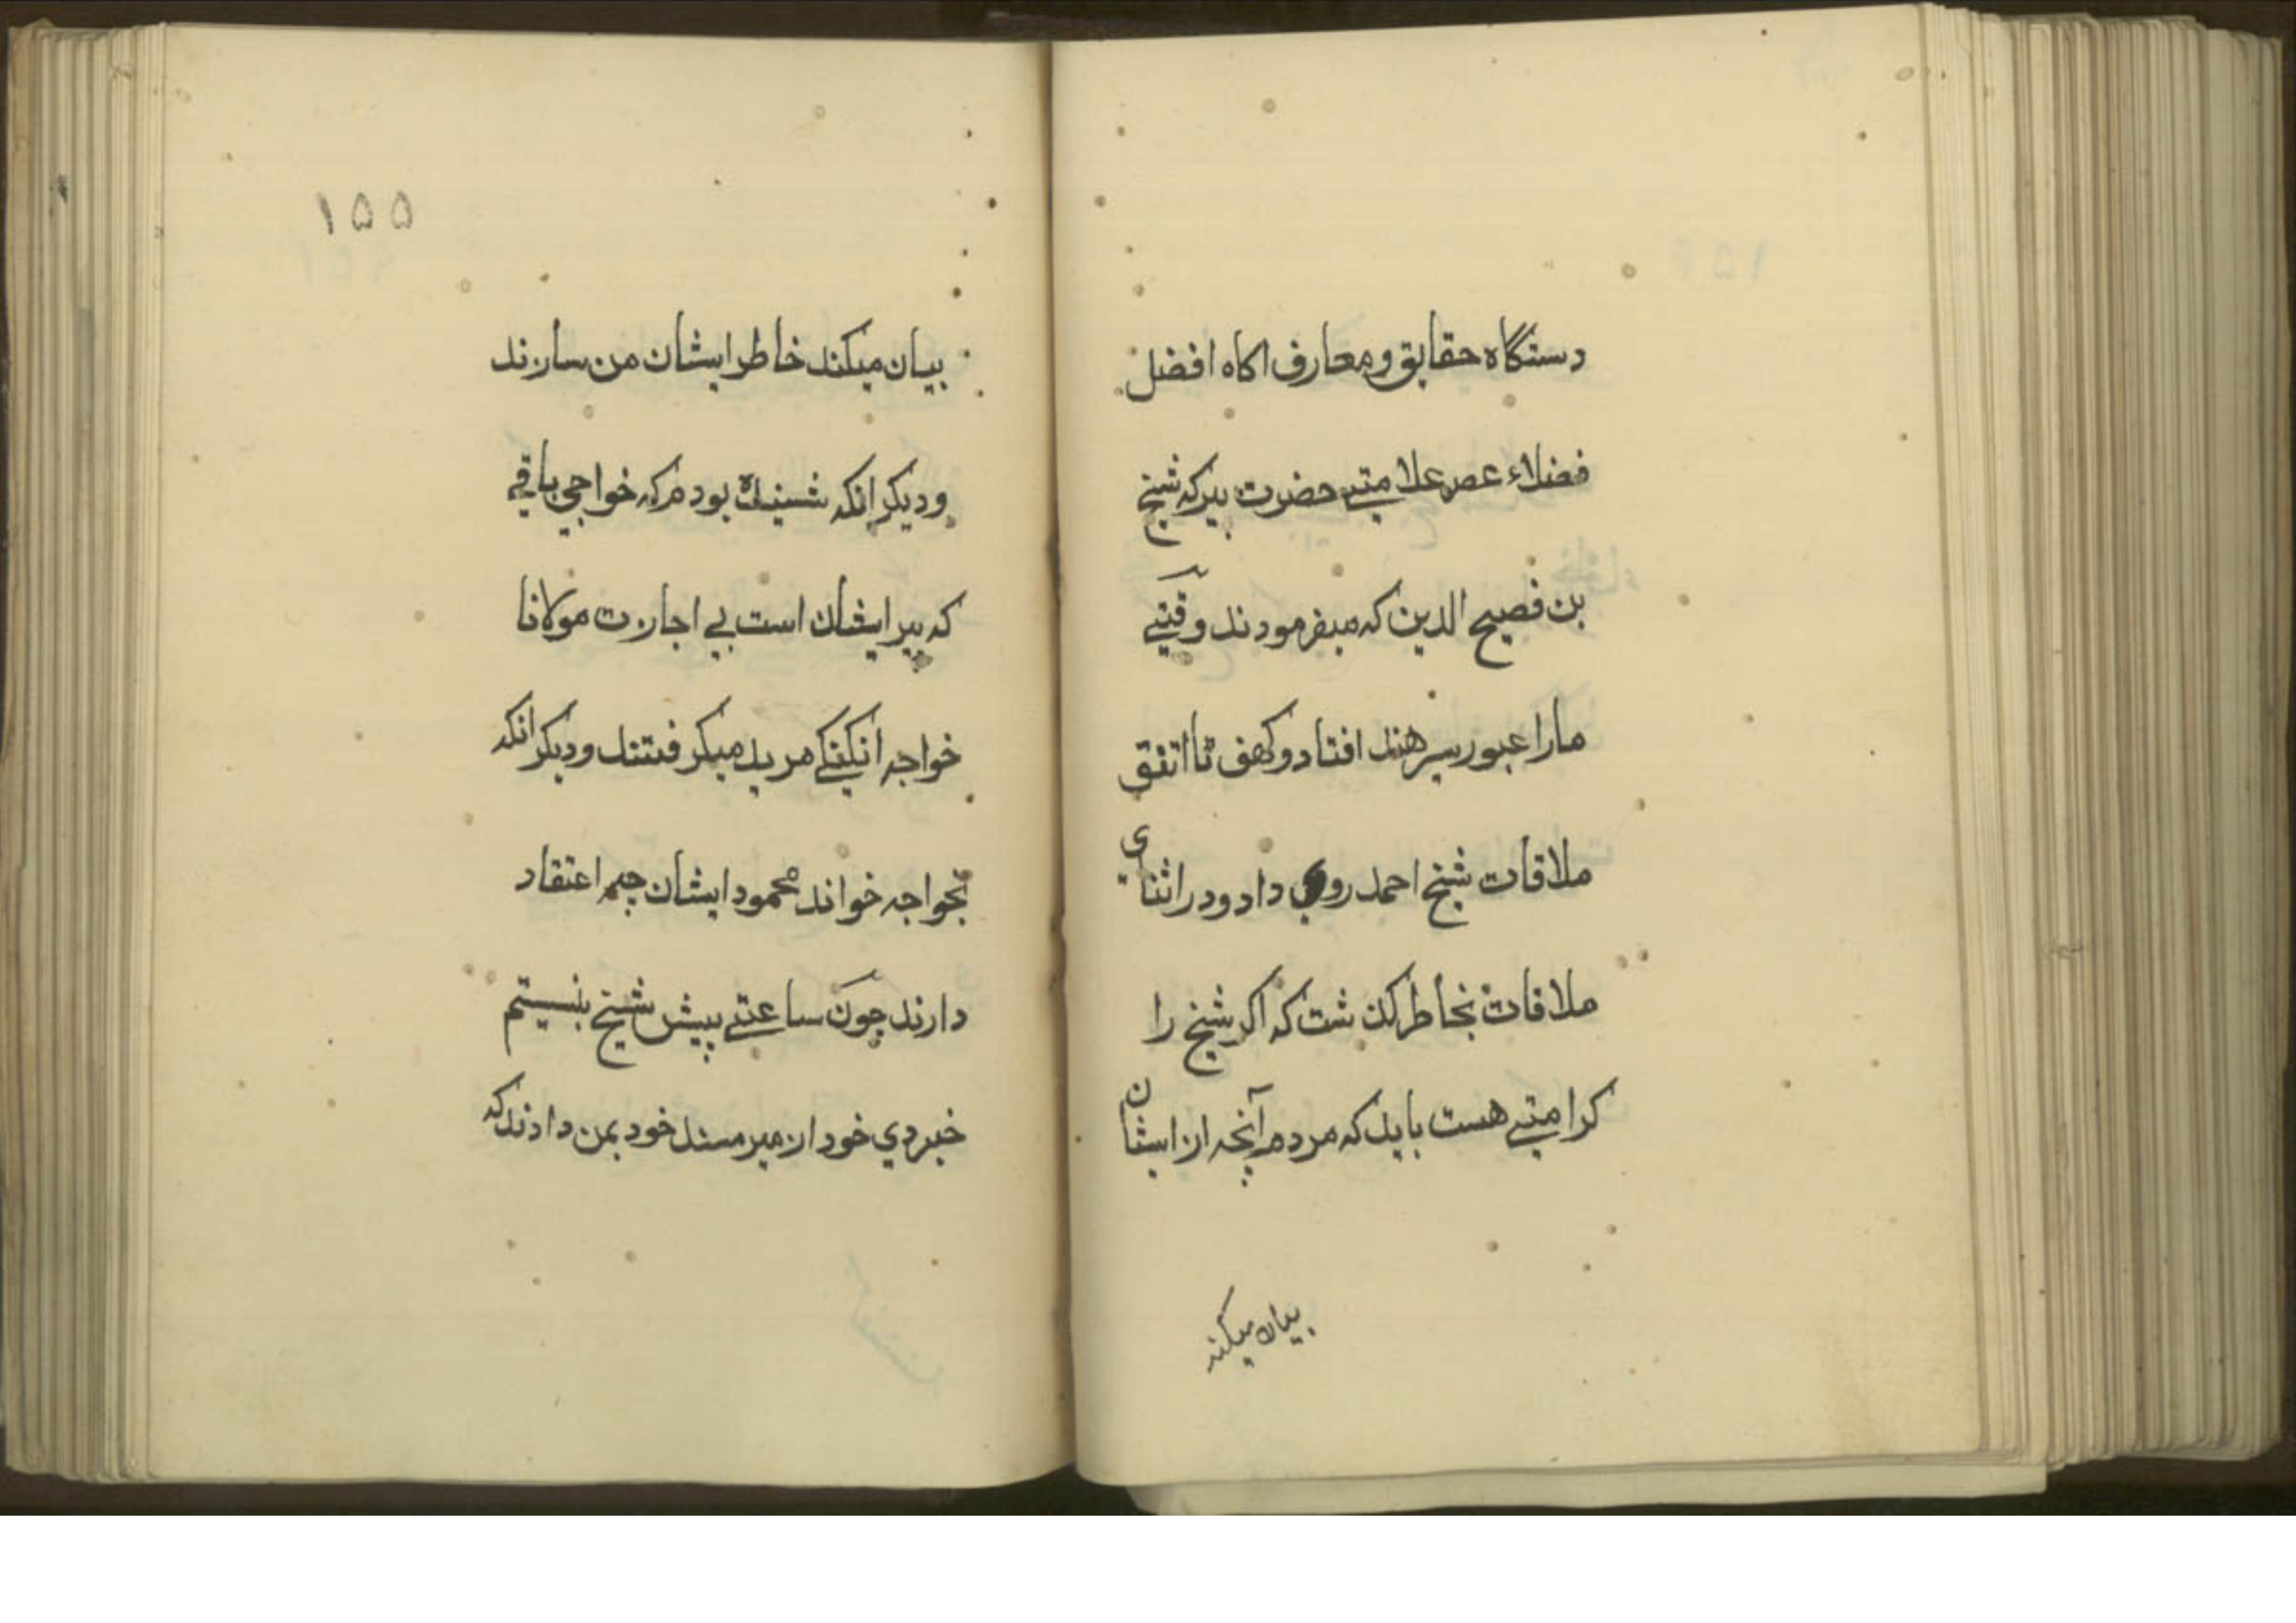 دستگاه حقایق و معارف اکاه افضل
فضلاء عصر علامتے حضرت میرکه شیخ
بن فصیح الدین که میفرمودند وقتے
مارا عبور سرهند افتاد و
ملاقات شیخ احمد روی داد و در اثنای
ملاقات بخاطر کذشت که اکر شیخ را
کرامتے هست باید که مردم آنچه از ایشان
بیان میکند
۱۵۵
بیان میکند خاطر ایشان من سازند
و دیکر انکه شنیده بودم که خواجي باقے
که پیر ایشان است بے اجازت مولانا
خواجه انکنکے مرید میکرفتند و دیکر انکه
بخواجه خواند محمود ایشان چه اعتقاد
دارند چون ساعتے پیش شیخ بنیستم
خبردي خود از میر مسند خود بمن دادند که